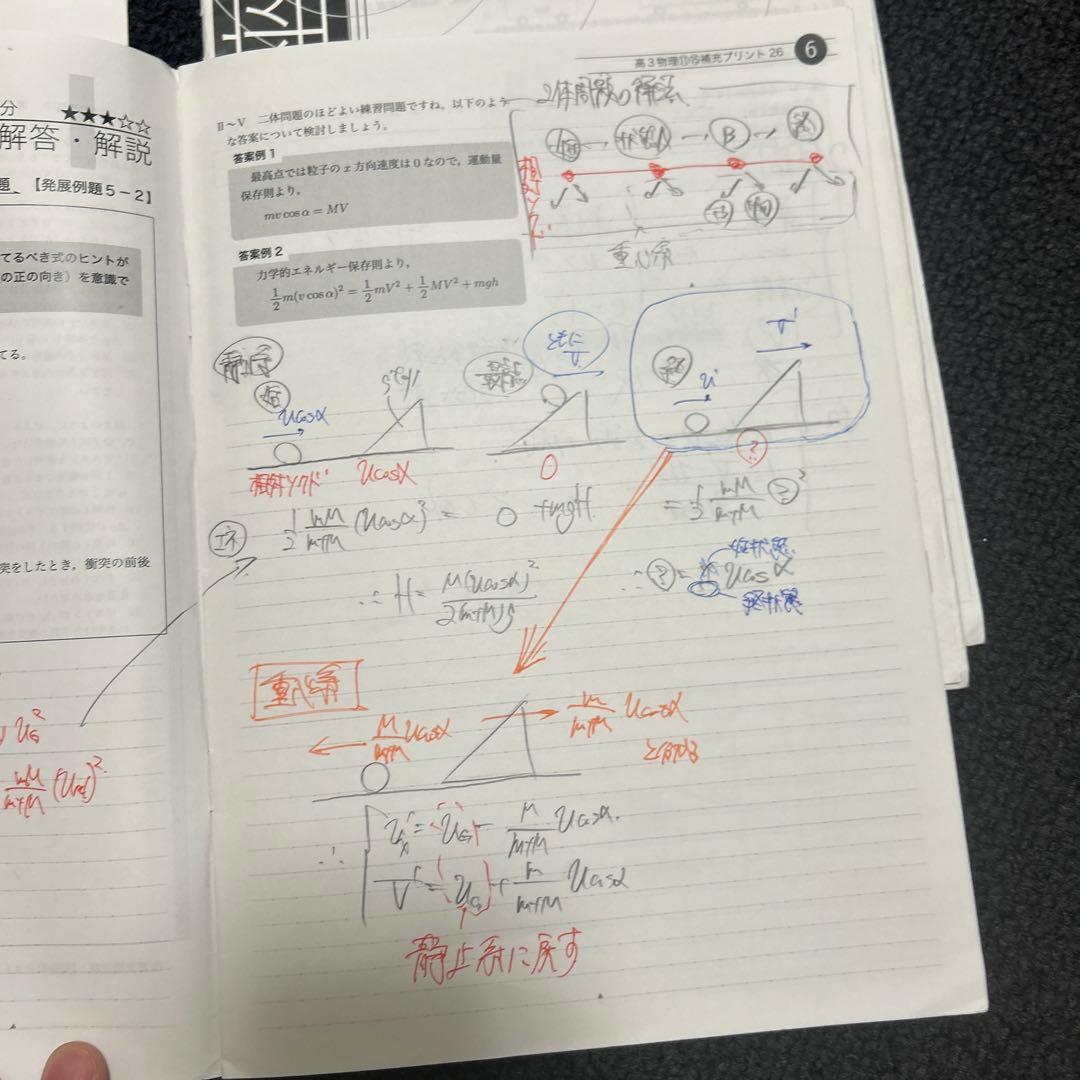 分 ★★★☆☆
解答・解説
題 【発展例題5-2】
てるべき式のヒントが
の正の向き)を意識で
てる。
突をしたとき,衝突の前後
mM/(m+M)
高3物理⑪⑮補充プリント 26 6
II~V 二体問題のほどよい練習問題ですね。以下のよう
な答案について検討しましょう。
答案例 1
最高点では粒子の x 方向速度は 0 なので,運動量
保存則より,
mv cos α = MV
答案例 2
力学的エネルギー保存則より,
1/2 m(v cos α)² = 1/2 mV² + 1/2 MV² + mgh
の解法
始 → 状態A → B → 終
相対
重心系
静止系
始
ucosα
最高点
ともに
V
終
u'
V'
相対
ucosα
0
?
エネ
1/2 mM/(m+M) (ucosα)² = 0 + mgH = 1/2 mM/(m+M) ?²
∴ H = M(ucosα)²/2(m+M)g
∴ ? = ucosα
始状態
終状態
重心系
M/(m+M) ucosα
m/(m+M) ucosα
と分かる
∴ uₓ' = u_G - M/(m+M) ucosα.
V' = u_G + m/(m+M) ucosα
静止系に戻す